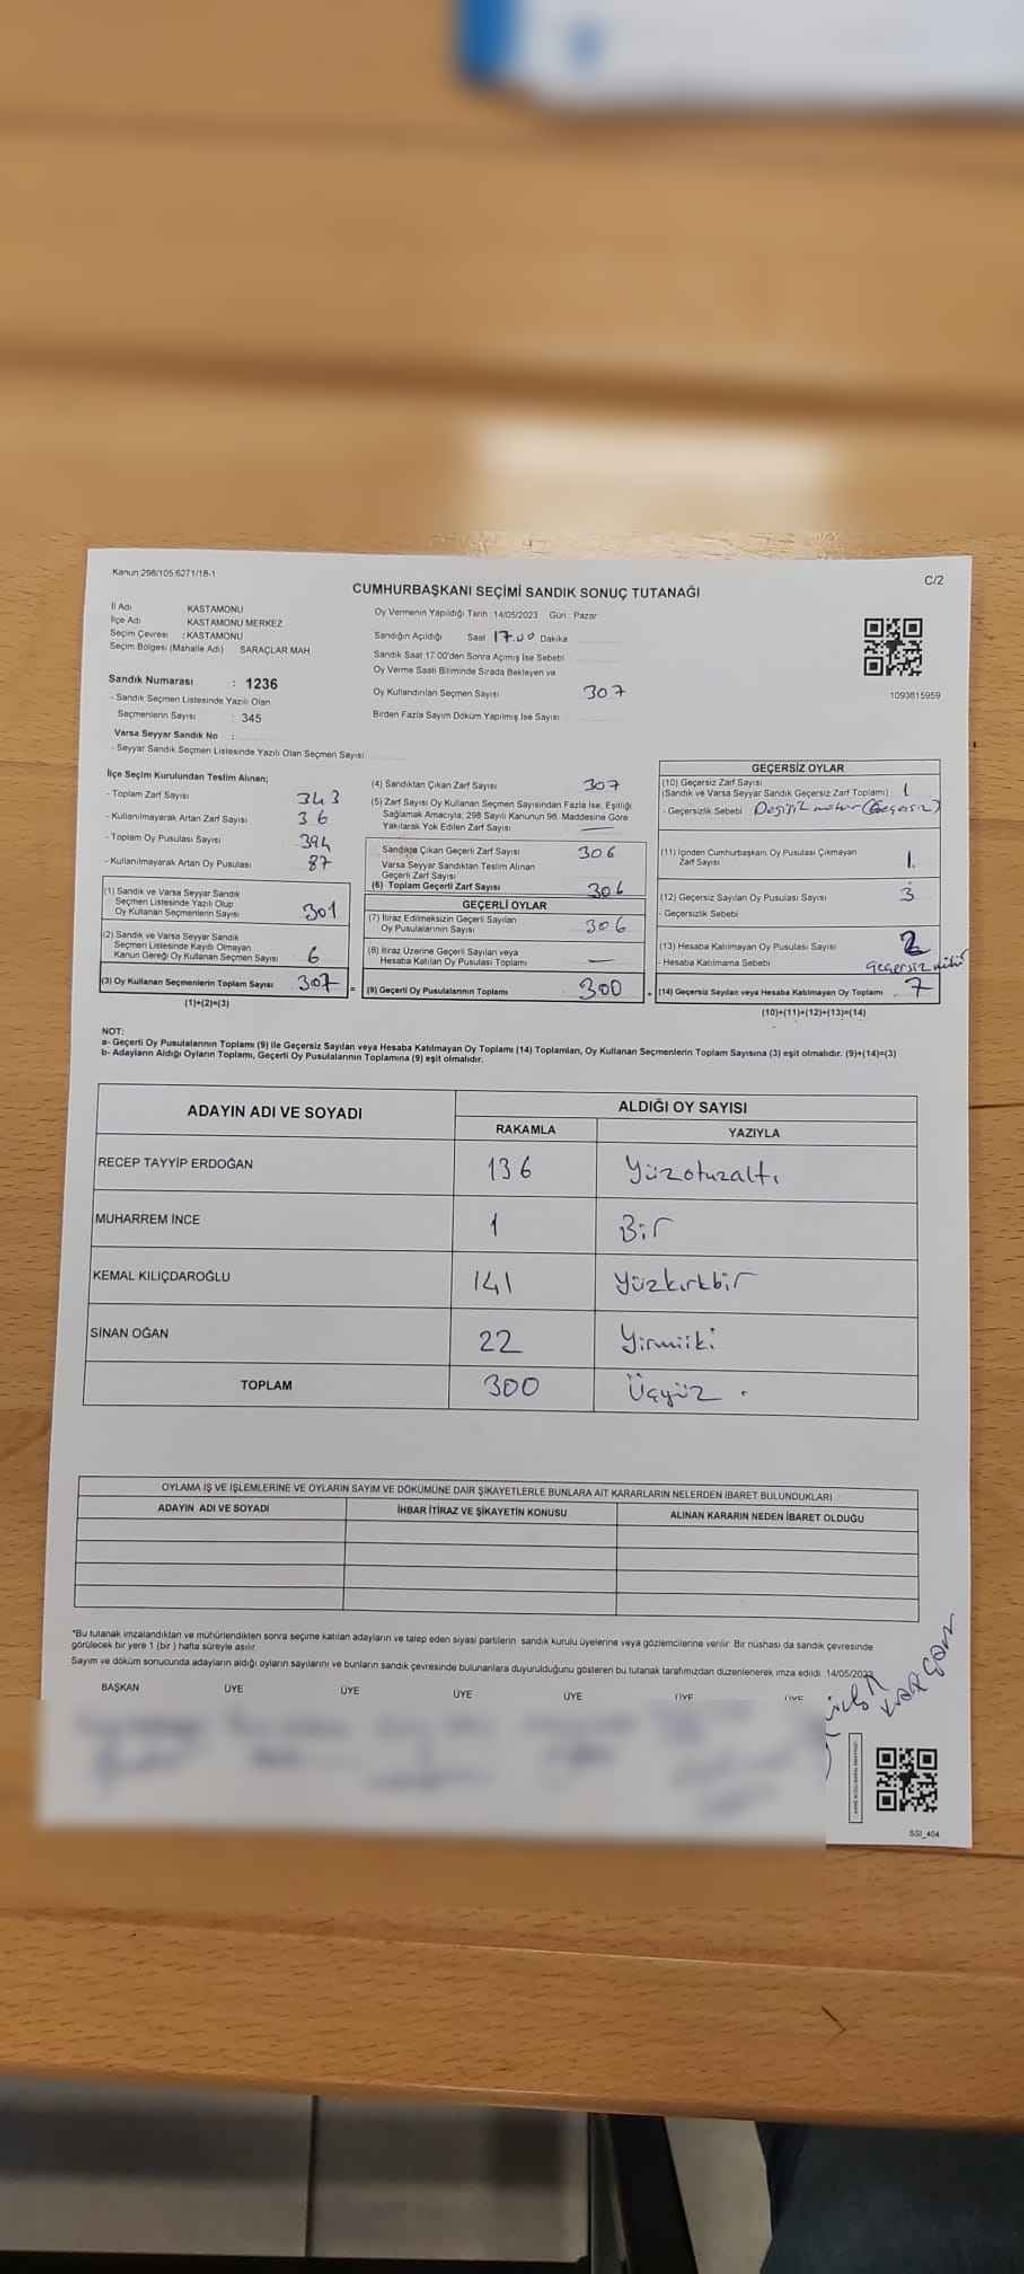 Kanun:298/105;6271/18-1
C/2
CUMHURBAŞKANI SEÇİMİ SANDIK SONUÇ TUTANAĞI
İl Adı KASTAMONU
İlçe Adı KASTAMONU MERKEZ
Seçim Çevresi : KASTAMONU
Seçim Bölgesi (Mahalle Adı) SARAÇLAR MAH
Sandık Numarası : 1236
- Sandık Seçmen Listesinde Yazılı Olan
Seçmenlerin Sayısı : 345
Varsa Seyyar Sandık No :
- Seyyar Sandık Seçmen Listesinde Yazılı Olan Seçmen Sayısı
Oy Vermenin Yapıldığı Tarih : 14/05/2023 Gün : Pazar
Sandığın Açıldığı Saat 17.00 Dakika
Sandık Saat 17:00'den Sonra Açmış İse Sebebi
Oy Verme Saati Bitiminde Sırada Bekleyen ve
Oy Kullandırılan Seçmen Sayısı 307
Birden Fazla Sayım Döküm Yapılmış İse Sayısı
1093815959
İlçe Seçim Kurulundan Teslim Alınan;
- Toplam Zarf Sayısı 343
- Kullanılmayarak Artan Zarf Sayısı 36
- Toplam Oy Pusulası Sayısı 394
- Kullanılmayarak Artan Oy Pusulası 87
(1) Sandık ve Varsa Seyyar Sandık
Seçmen Listesinde Yazılı Olup
Oy Kullanan Seçmenlerin Sayısı 301
(2) Sandık ve Varsa Seyyar Sandık
Seçmen Listesinde Kayıtlı Olmayan
Kanun Gereği Oy Kullanan Seçmen Sayısı 6
(3) Oy Kullanan Seçmenlerin Toplam Sayısı 307 =
(1)+(2)=(3)
(4) Sandıktan Çıkan Zarf Sayısı 307
(5) Zarf Sayısı Oy Kullanan Seçmen Sayısından Fazla İse, Eşitliği
Sağlamak Amacıyla, 298 Sayılı Kanunun 98. Maddesine Göre
Yakılarak Yok Edilen Zarf Sayısı —
Sandıkta Çıkan Geçerli Zarf Sayısı 306
Varsa Seyyar Sandıktan Teslim Alınan
Geçerli Zarf Sayısı
(6) Toplam Geçerli Zarf Sayısı 306
GEÇERLİ OYLAR
(7) İtiraz Edilmeksizin Geçerli Sayılan
Oy Pusulalarının Sayısı 306
(8) İtiraz Üzerine Geçerli Sayılan veya
Hesaba Katılan Oy Pusulası Toplamı —
(9) Geçerli Oy Pusulalarının Toplamı 300 +
GEÇERSİZ OYLAR
(10) Geçersiz Zarf Sayısı
(Sandık ve Varsa Seyyar Sandık Geçersiz Zarf Toplamı) 1
- Geçersizlik Sebebi (Geçersiz)
(11) İçinden Cumhurbaşkanı Oy Pusulası Çıkmayan
Zarf Sayısı 1
(12) Geçersiz Sayılan Oy Pusulası Sayısı 3
- Geçersizlik Sebebi
(13) Hesaba Katılmayan Oy Pusulası Sayısı 2
- Hesaba Katılmama Sebebi Geçersiz
(14) Geçersiz Sayılan veya Hesaba Katılmayan Oy Toplamı 7
(10)+(11)+(12)+(13)=(14)
NOT:
a- Geçerli Oy Pusulalarının Toplamı (9) ile Geçersiz Sayılan veya Hesaba Katılmayan Oy Toplamı (14) Toplamları, Oy Kullanan Seçmenlerin Toplam Sayısına (3) eşit olmalıdır. (9)+(14)=(3)
b- Adayların Aldığı Oyların Toplamı, Geçerli Oy Pusulalarının Toplamına (9) eşit olmalıdır.
ADAYIN ADI VE SOYADI ALDIĞI OY SAYISI
RAKAMLA YAZIYLA
RECEP TAYYİP ERDOĞAN 136 Yüzotuzaltı
MUHARREM İNCE 1 Bir
KEMAL KILIÇDAROĞLU 141 Yüzkırkbir
SİNAN OĞAN 22 Yirmiiki
TOPLAM 300 Üçyüz
OYLAMA İŞ VE İŞLEMLERİNE VE OYLARIN SAYIM VE DÖKÜMÜNE DAİR ŞİKAYETLERLE BUNLARA AİT KARARLARIN NELERDEN İBARET BULUNDUKLARI
ADAYIN ADI VE SOYADI İHBAR İTİRAZ VE ŞİKAYETİN KONUSU ALINAN KARARIN NEDEN İBARET OLDUĞU
*Bu tutanak imzalandıktan ve mühürlendikten sonra seçime katılan adayların ve talep eden siyasi partilerin sandık kurulu üyelerine veya gözlemcilerine verilir. Bir nüshası da sandık çevresinde
görülecek bir yere 1 (bir ) hafta süreyle asılır.
Sayım ve döküm sonucunda adayların aldığı oyların sayılarını ve bunların sandık çevresinde bulunanlara duyurulduğunu gösteren bu tutanak tarafımızdan düzenlenerek imza edildi. 14/05/2023
BAŞKAN ÜYE ÜYE ÜYE ÜYE ÜYE ÜYE
SSI_404